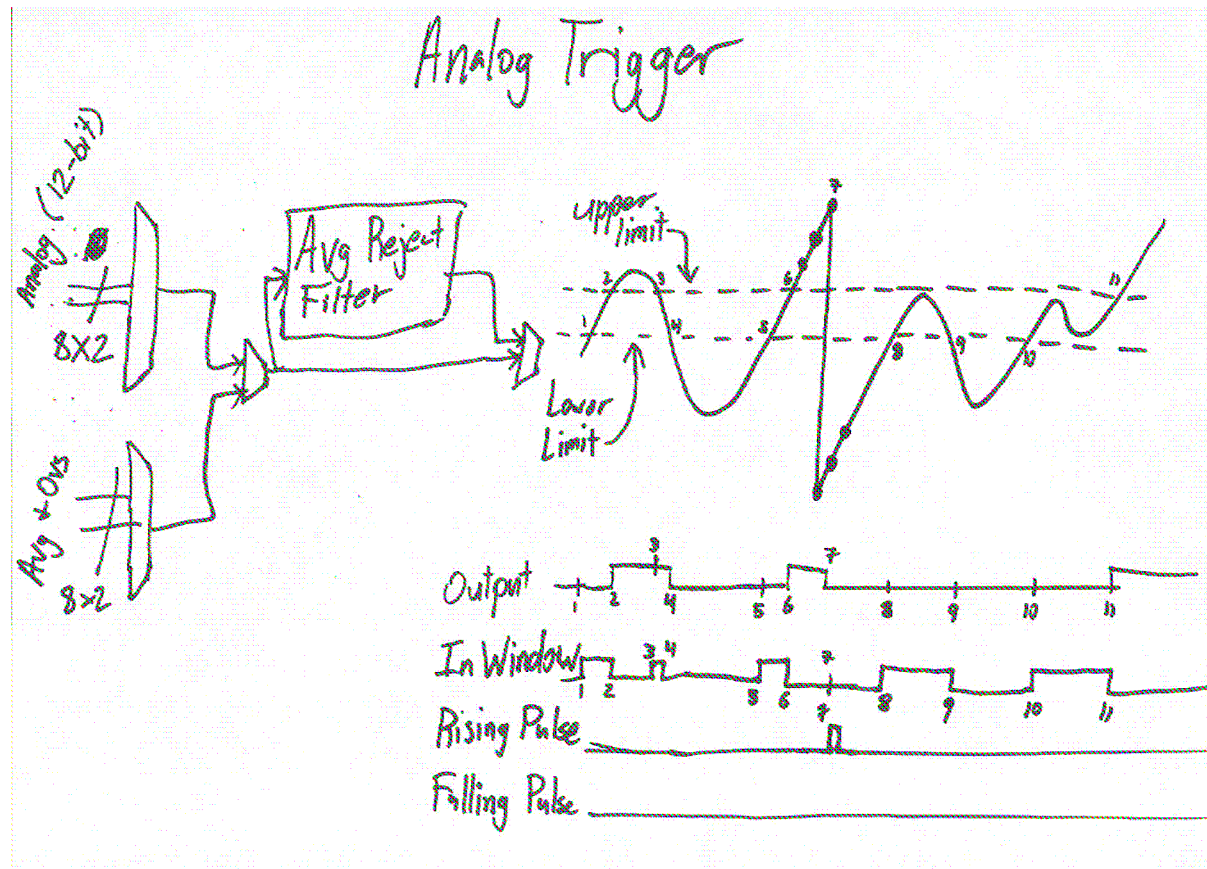 Analog Trigger
Analog (12-bit)
8x2
Avg + Ovs
8x2
Avg Reject
Filter
Upper
limit
Lower
Limit
1
2
3
4
5
6
7
8
9
10
11
Output
1
2
3
4
5
6
7
8
9
10
11
In Window
1
2
3
4
5
6
7
7
8
9
10
11
Rising Pulse
Falling Pulse